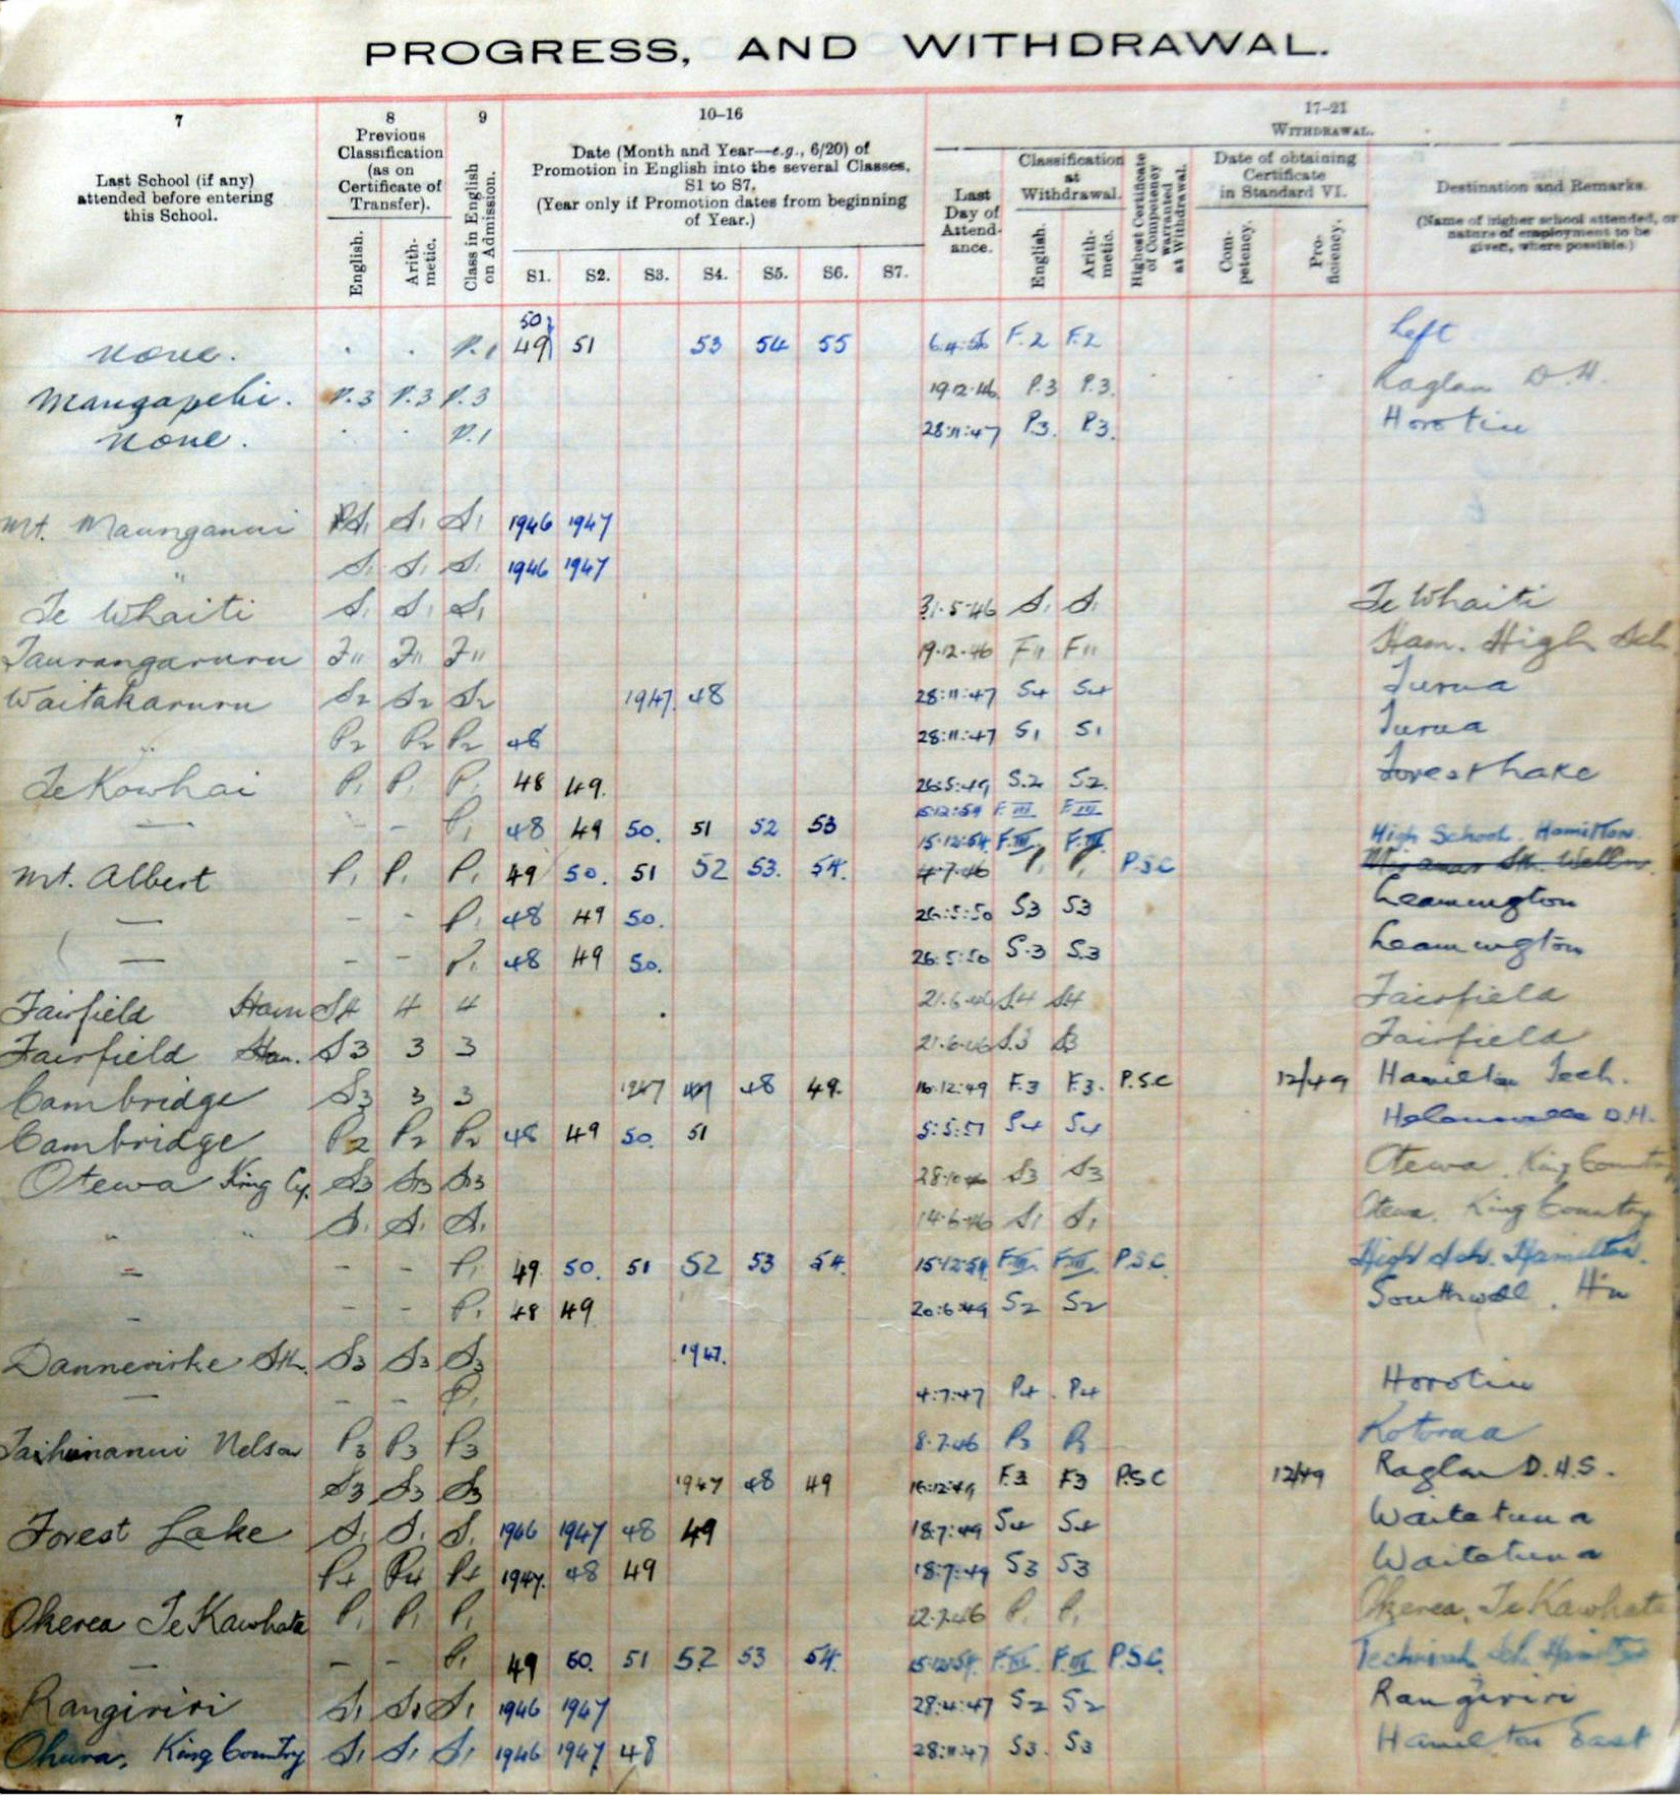 PROGRESS, AND WITHDRAWAL.
7
Last School (if any) attended before entering this School.
8
Previous Classification (as on Certificate of Transfer).
English.
Arithmetic.
9
Class in English on Admission.
10–16
Date (Month and Year—e.g., 6/20) of Promotion in English into the several Classes, S1 to S7.
(Year only if Promotion dates from beginning of Year.)
S1. S2. S3. S4. S5. S6. S7.
17–21
WITHDRAWAL.
Last Day of Attendance.
Classification at Withdrawal.
English.
Arithmetic.
Highest Certificate of Competency warranted at Withdrawal.
Date of obtaining Certificate in Standard VI.
Competency.
Proficiency.
Destination and Remarks.
(Name of higher school attended, or nature of employment to be given, where possible.)
50
none. . . P.1 49 51 53 54 55 F.2 F.2 Left
Mangapehi. P.3 P.3 P.3 19.12.46 P.3 P.3. Raglan D.H.
none. . . P.1 28:11:47 P3. P3. Horotiu
Mt. Maunganui S1 S1 S1 1946 1947
" S1 S1 S1 1946 1947
Te Whaiti S1 S1 S1 31.5.46 S1 S1 Te Whaiti
Taurangaruru F11 F11 F11 19.12.46 F11 F11 Ham. High Sch
Waitakaruru S2 S2 S2 1947 48 28:11:47 S4 S4 Turua
" P2 P2 P2 48 28:11:47 S1 S1 Turua
Te Kowhai P1 P1 P1 48 49. 26:5:49 S.2 S2. Forest Lake
15:12:54 F.III F.III
— – – P1 48 49 50. 51 52 53 15:12:54 F.III F.III High School. Hamilton.
Mt. Albert P1 P1 P1 49 50. 51 52 53. 54. 4.7.46 P1 P1 P.S.C Sth. Welln.
— – – P1 48 49 50. 26:5:50 S3 S3 Leamington
— – – P1 48 49 50. 26:5:50 S.3 S.3 Leamington
Fairfield Ham S4 4 4 21.6.46 S4 S4 Fairfield
Fairfield Ham. S3 3 3 21.6.46 S.3 S3 Fairfield
Cambridge S3 3 3 1947 48 49. 16:12:49 F.3 F.3. P.S.C 12/49 Hamilton Tech.
Cambridge P2 P2 P2 48 49 50. 51 5:5:51 S4 S4 D.H.
Otewa King Cy. S3 S3 S3 S3 S3 Otewa. King Country
" " S1 S1 S1 14.6.46 S1 S1 Otewa. King Country
– – – P1 49. 50. 51 52 53 54. 15:12:54 F.III F.III P.S.C. High Sch. Hamilton.
– – – P1 48 49 20:6:49 S2 S2 Southwell. Hn
Dannevirke Sth. S3 S3 S3 1947.
— – – P1 4:7:47 P4 P4 Horotiu
Nelson P3 P3 P3 8.7.46 P3 P3
S3 S3 S3 1947 48 49 16:12:49 F.3 F3 P.S.C 12/49 Raglan D.H.S.
Forest Lake S1 S1 S1 1946 1947 48 49 18:7:49 S4 S4 Waitetuna
P4 P4 P4 1947. 48 49 18:7:49 S3 S3 Waitetuna
Okerea Te Kawhata P1 P1 P1 12.7.46 P1 P1 Okerea, Te Kawhata
— – – P1 49 50. 51 52 53 54. 15:12:54 F.III F.III P.S.C. Technical Sch. Hamilton
Rangiriri S1 S1 S1 1946 1947 28:4:47 S2 S2 Rangiriri
Ohura, King Country S1 S1 S1 1946 1947 48 28:11:47 S3. S3 Hamilton East